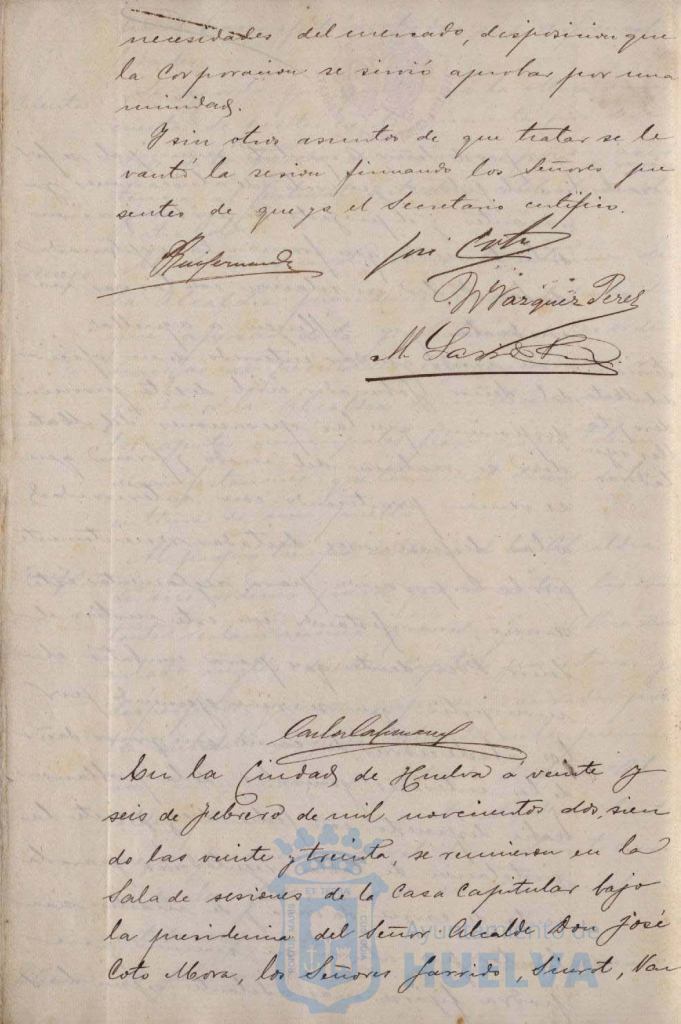 necesidades del mercado, disposicion que
la Corporacion se sirvió aprobar por una
nimidad.
Y sin otros asuntos de que tratar se le
vantó la sesion firmando los Señores pre
sentes de que yo el Secretario certifico.
José Coto
Vazquez Perez
M.
Carlos
En la Ciudad de Huelva á veinte y
seis de febrero de mil novecientos dos, sien
do las veinte y treinta, se reunieron en la
Sala de sesiones de la Casa Capitular bajo
la presidencia del Señor Alcalde Don José
Coto Mora, los Señores Garrido, Siurot, Vaz
Ayuntamiento de
HUELVA